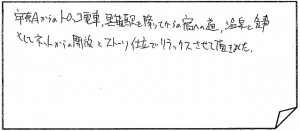 宇奈月からトロッコ電車、黒薙駅を降りてからの宿への道、温泉と食事
そしてネットからの開放とストーリー仕立てでリラックスさせて頂きました。